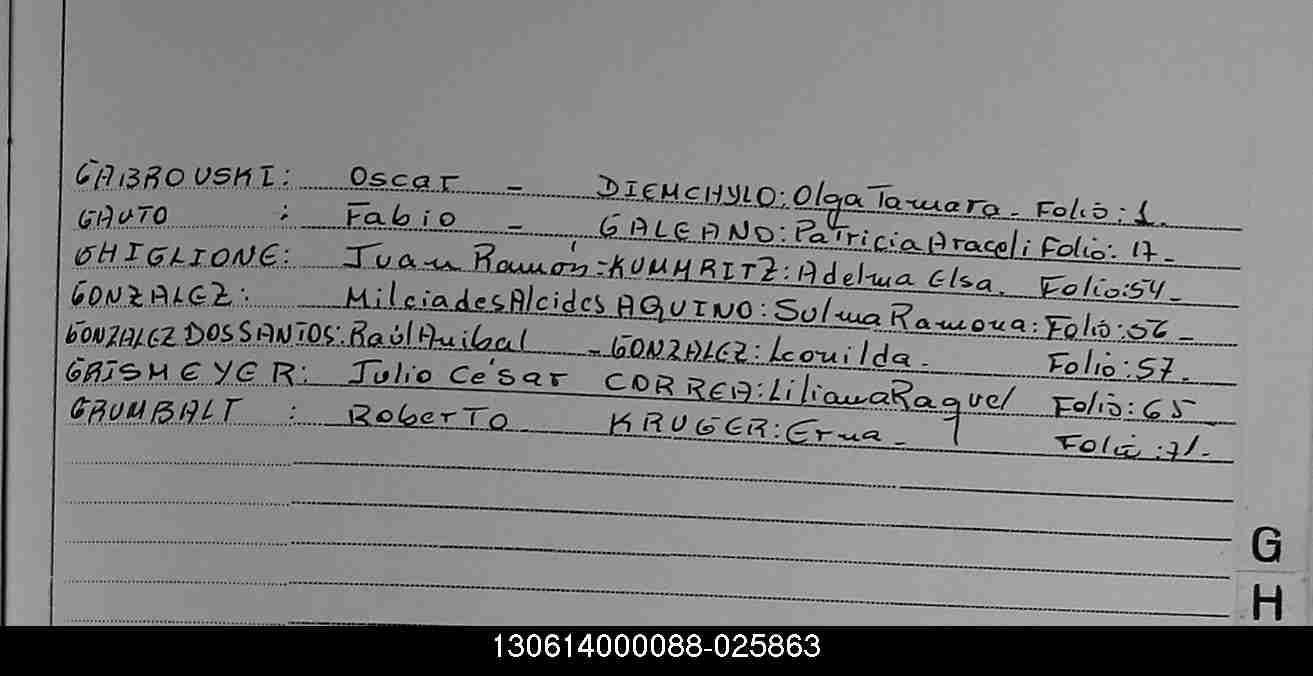 GABROUSKI: Oscar - DIEMCHYLO: Olga Tamara - Folio: 1.
GAUTO : Fabio - GALEANO: Patricia Araceli Folio: 17-
GHIGLIONE: Juan Ramón - KUMMRITZ: Adelma Elsa. Folio: 54-
GONZALEZ: Milciades Alcides AQUINO: Sulma Ramona: Folio: 56-
GONZALEZ DOS SANTOS: Raúl Anibal - GONZALEZ: Leonilda. Folio: 57-
GRISMEYER: Julio César CORREA: Liliana Raquel Folio: 65
GRUMBALT : Roberto KRUGER: Erna - Folio: 71-
G
H
130614000088-025863